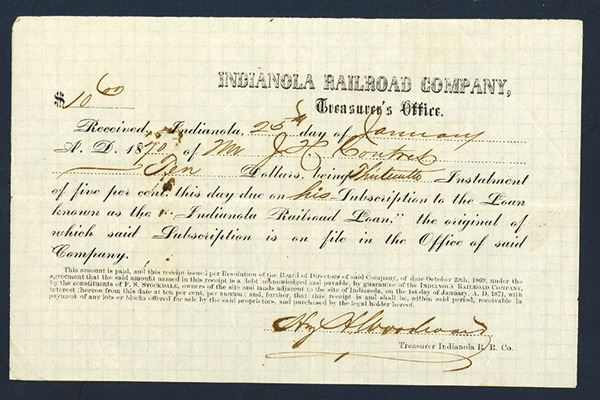 INDIANOLA RAILROAD COMPANY,
$10.00
Treasurer's Office.
Received, Indianola, 25th day of January
A. D. 1870 of Mr J. H.
Ten Dollars, being Thirteenth Instalment
of five per cent. this day due on his Subscription to the Loan
known as the "Indianola Railroad Loan," the original of
which said Subscription is on file in the Office of said
Company.
This amount is paid, and this receipt issued per Resolution of the Board of Directors of said Company, of date October 29th, 1869, under
agreement that the said amount named in this receipt is a debt acknowledged and payable, by guarantee of the INDIANOLA RAILROAD COMPANY,
by the constituents of F. S. STOCKDALE, owners of the site and lands adjacent to the site of Indianola, on the 1st day of January, A. D. 1871, with
interest thereon from this date at ten per cent. per annum; and, further, that this receipt is and shall be, within said period, receivable in
payment of any lots or blocks offered for sale by the said proprietors, and purchased by the legal holder hereof.
Woodward
Treasurer Indianola R. R. Co.